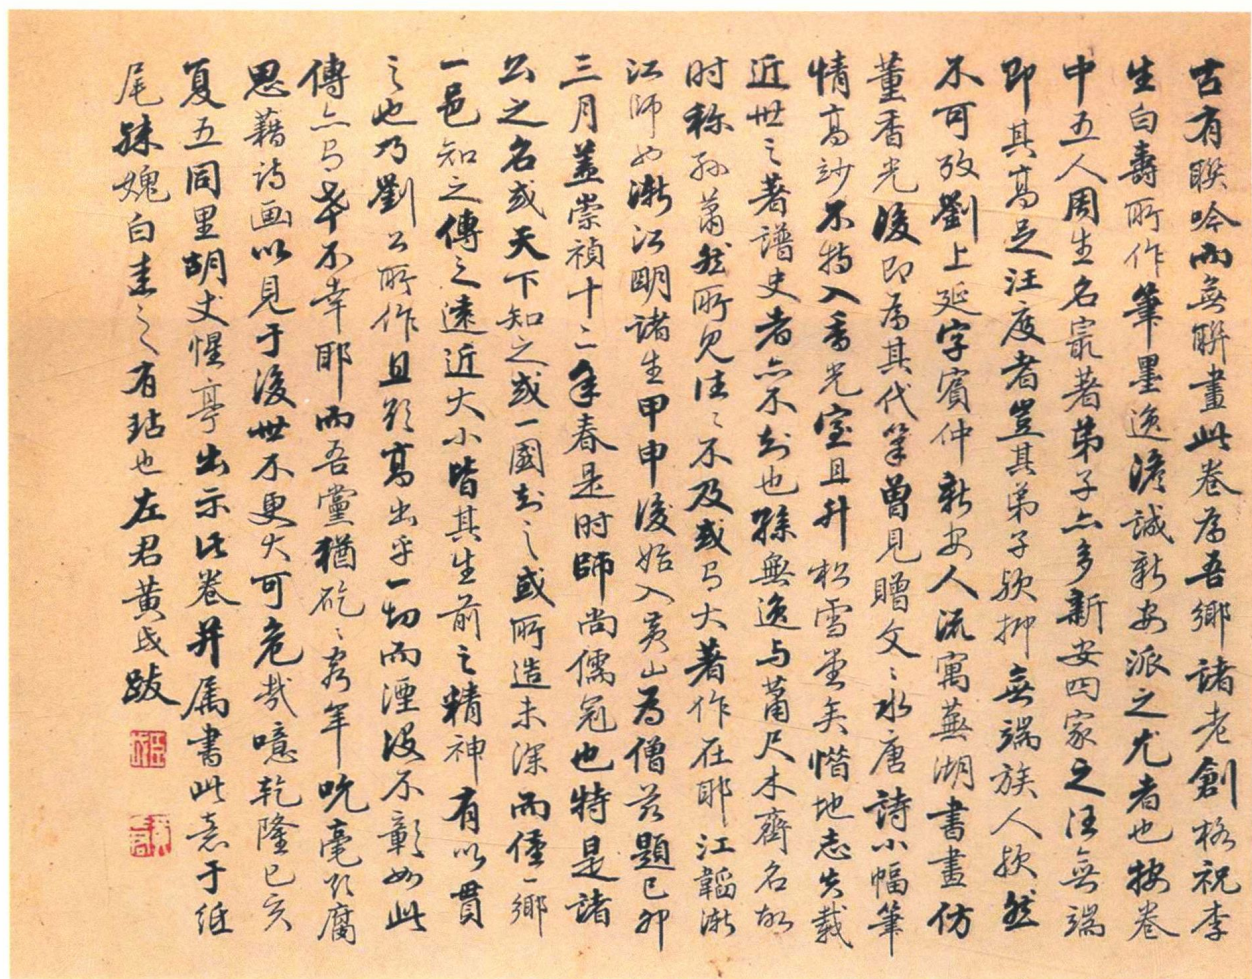 古有聯吟而無聯畫此卷為吾鄉諸老創格祝李
生白壽所作筆墨逸澹誠新安派之尤者也按卷
中五人周生名宸著弟子亦多新安四家之汪無端
即其高足汪度者豈其弟子欤抑無端族人欤然
不可攷劉上延字賓仲新安人流寓蕪湖書畫仿
董香光後即為其代筆曾見贈文之水唐詩小幅筆
情高玅不特入香光室且升松雪堂矣惜地志失載
近世之著譜史者亦不知也孫無逸与蕭尺木齊名故
时称孫蕭然所見往〻不及或有大著作在耶江韜漸
江師也漸江明諸生甲申後始入黃山為僧兹題己卯
三月蓋崇禎十二年春是时師尚儒冠也特是諸
公之名或天下知之或一國知之或所造未深而僅一鄉
一邑知之傳之遠近大小皆其生前之精神有以貫
之也乃劉公所作且駸高出乎一切而湮沒不彰如此
傳亦有幸不幸耶而吾黨猶矻〻窮年吮毫欲腐
思藉詩画以見于後世不更大可危哉噫乾隆己亥
夏五同里胡丈惺亭出示此卷并属書此意于紙
尾殊媿白圭之有玷也左君黄戉跋